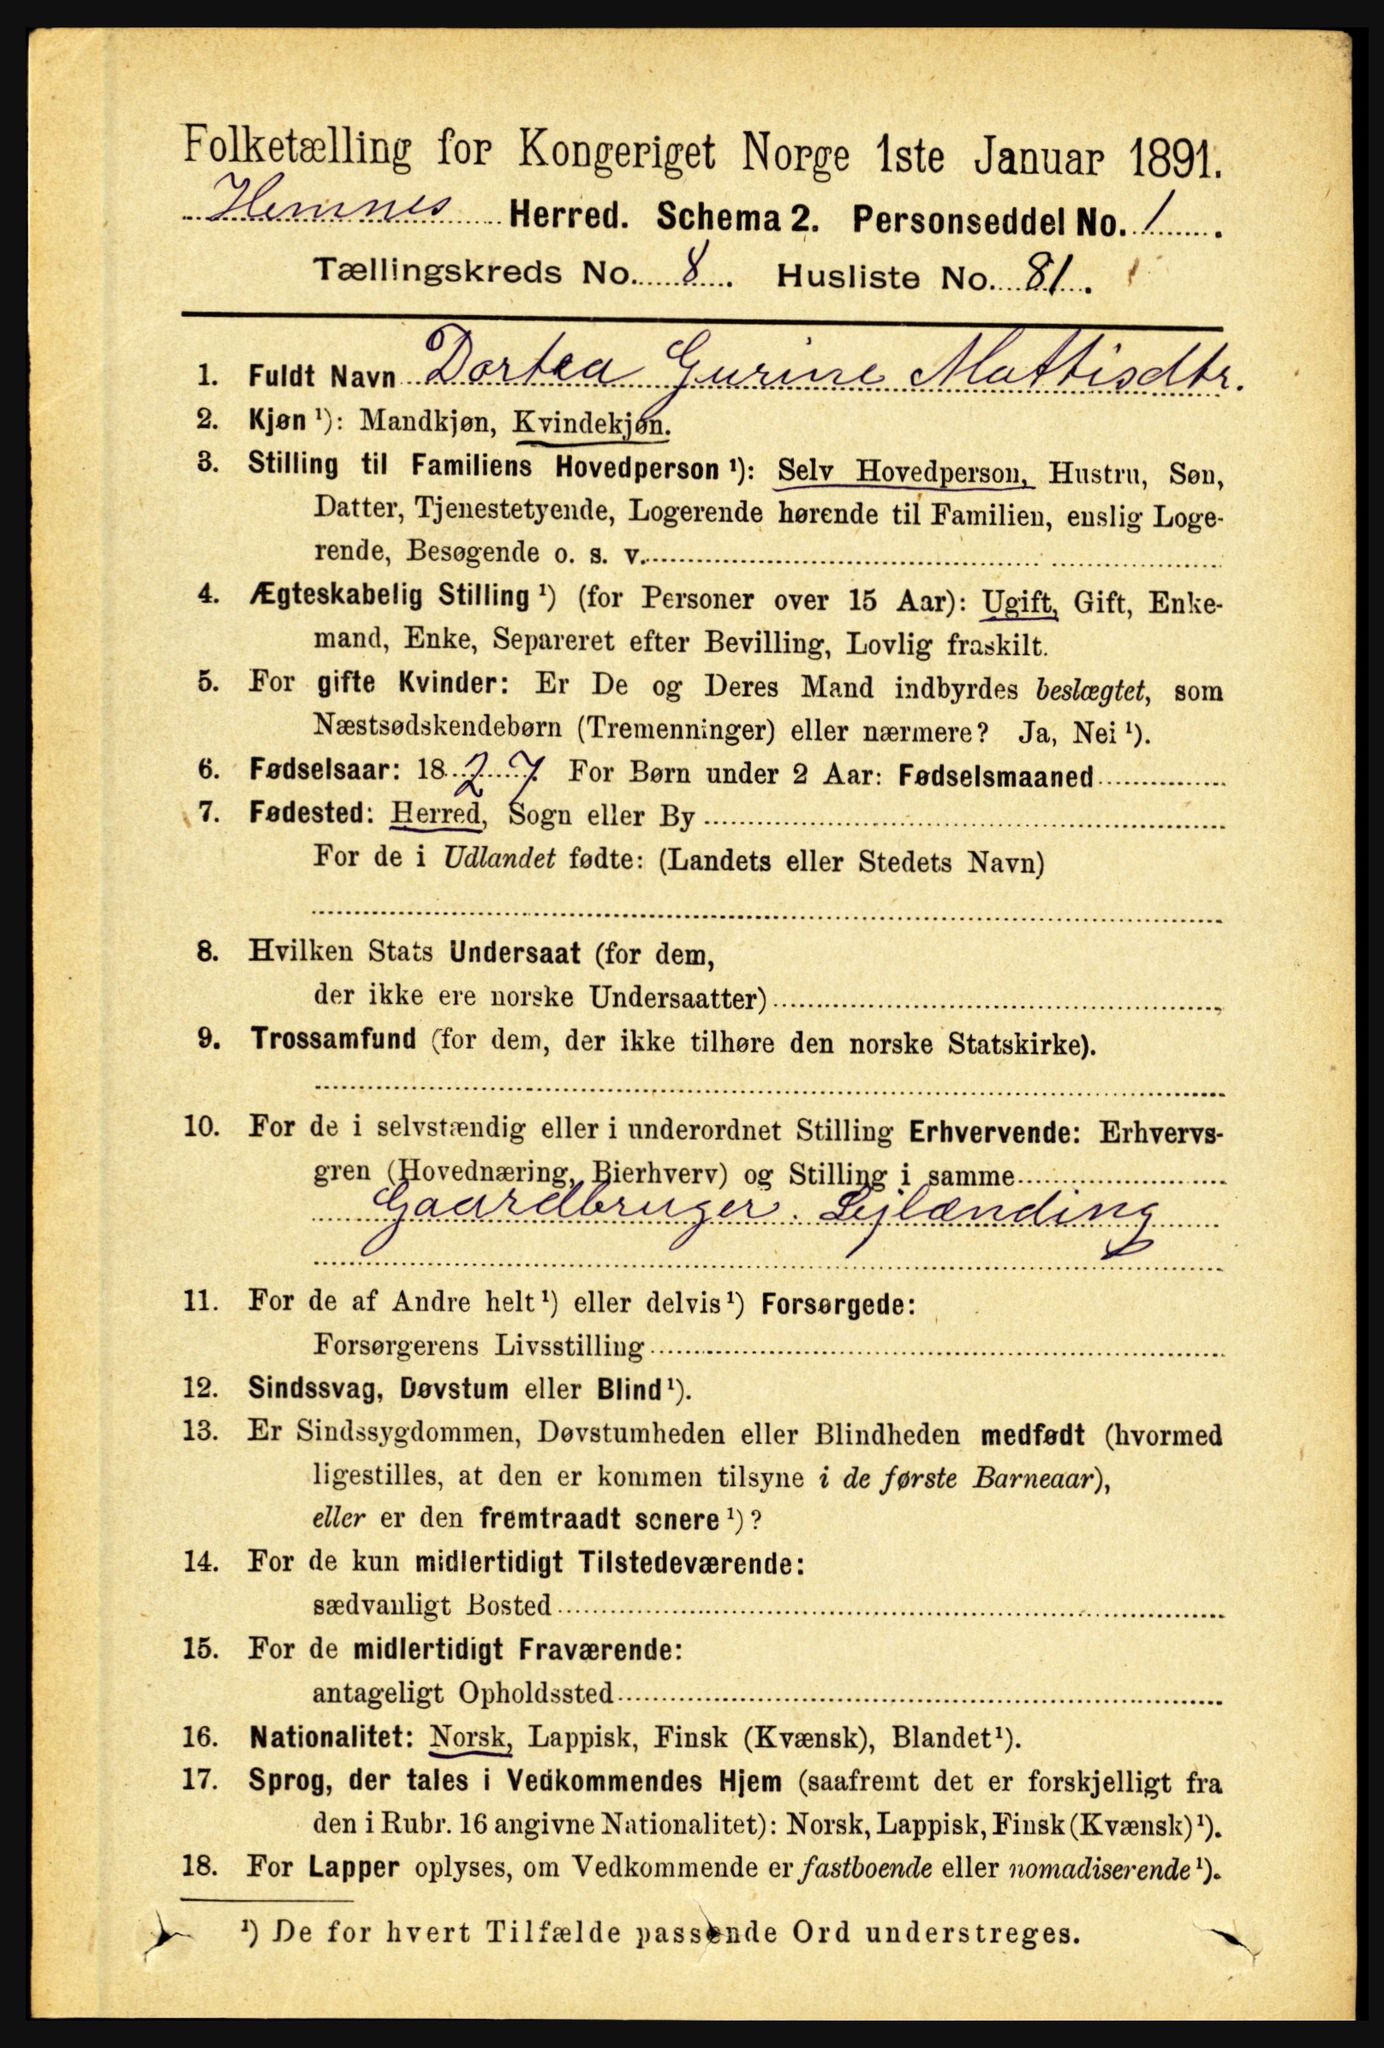 Folketælling for Kongeriget Norge 1ste Januar 1891.
Hemnes Herred. Schema 2. Personseddel No. 1.
Tællingskreds No. 8. Husliste No. 81.
1. Fuldt Navn Dortea Gurine Mattisdtr.
2. Kjøn ¹): Mandkjøn, Kvindekjøn.
3. Stilling til Familiens Hovedperson ¹): Selv Hovedperson, Hustru, Søn,
Datter, Tjenestetyende, Logerende hørende til Familien, enslig Loge-
rende, Besøgende o. s. v.
4. Ægteskabelig Stilling ¹) (for Personer over 15 Aar): Ugift, Gift, Enke-
mand, Enke, Separeret efter Bevilling, Lovlig fraskilt.
5. For gifte Kvinder: Er De og Deres Mand indbyrdes beslægtet, som
Næstsødskendebørn (Tremenninger) eller nærmere? Ja, Nei ¹).
6. Fødselsaar: 1827 For Børn under 2 Aar: Fødselsmaaned
7. Fødested: Herred, Sogn eller By
For de i Udlandet fødte: (Landets eller Stedets Navn)
8. Hvilken Stats Undersaat (for dem,
der ikke ere norske Undersaatter)
9. Trossamfund (for dem, der ikke tilhøre den norske Statskirke).
10. For de i selvstændig eller i underordnet Stilling Erhvervende: Erhvervs-
gren (Hovednæring, Bierhverv) og Stilling i samme
Gaardbruger. Lejlænding
11. For de af Andre helt ¹) eller delvis ¹) Forsørgede:
Forsørgerens Livsstilling
12. Sindssvag, Døvstum eller Blind ¹).
13. Er Sindssygdommen, Døvstumheden eller Blindheden medfødt (hvormed
ligestilles, at den er kommen tilsyne i de første Barneaar),
eller er den fremtraadt senere ¹)?
14. For de kun midlertidigt Tilstedeværende:
sædvanligt Bosted
15. For de midlertidigt Fraværende:
antageligt Opholdssted
16. Nationalitet: Norsk, Lappisk, Finsk (Kvænsk), Blandet ¹).
17. Sprog, der tales i Vedkommendes Hjem (saafremt det er forskjelligt fra
den i Rubr. 16 angivne Nationalitet): Norsk, Lappisk, Finsk (Kvænsk) ¹).
18. For Lapper oplyses, om Vedkommende er fastboende eller nomadiserende ¹).
¹) De for hvert Tilfælde passende Ord understreges.